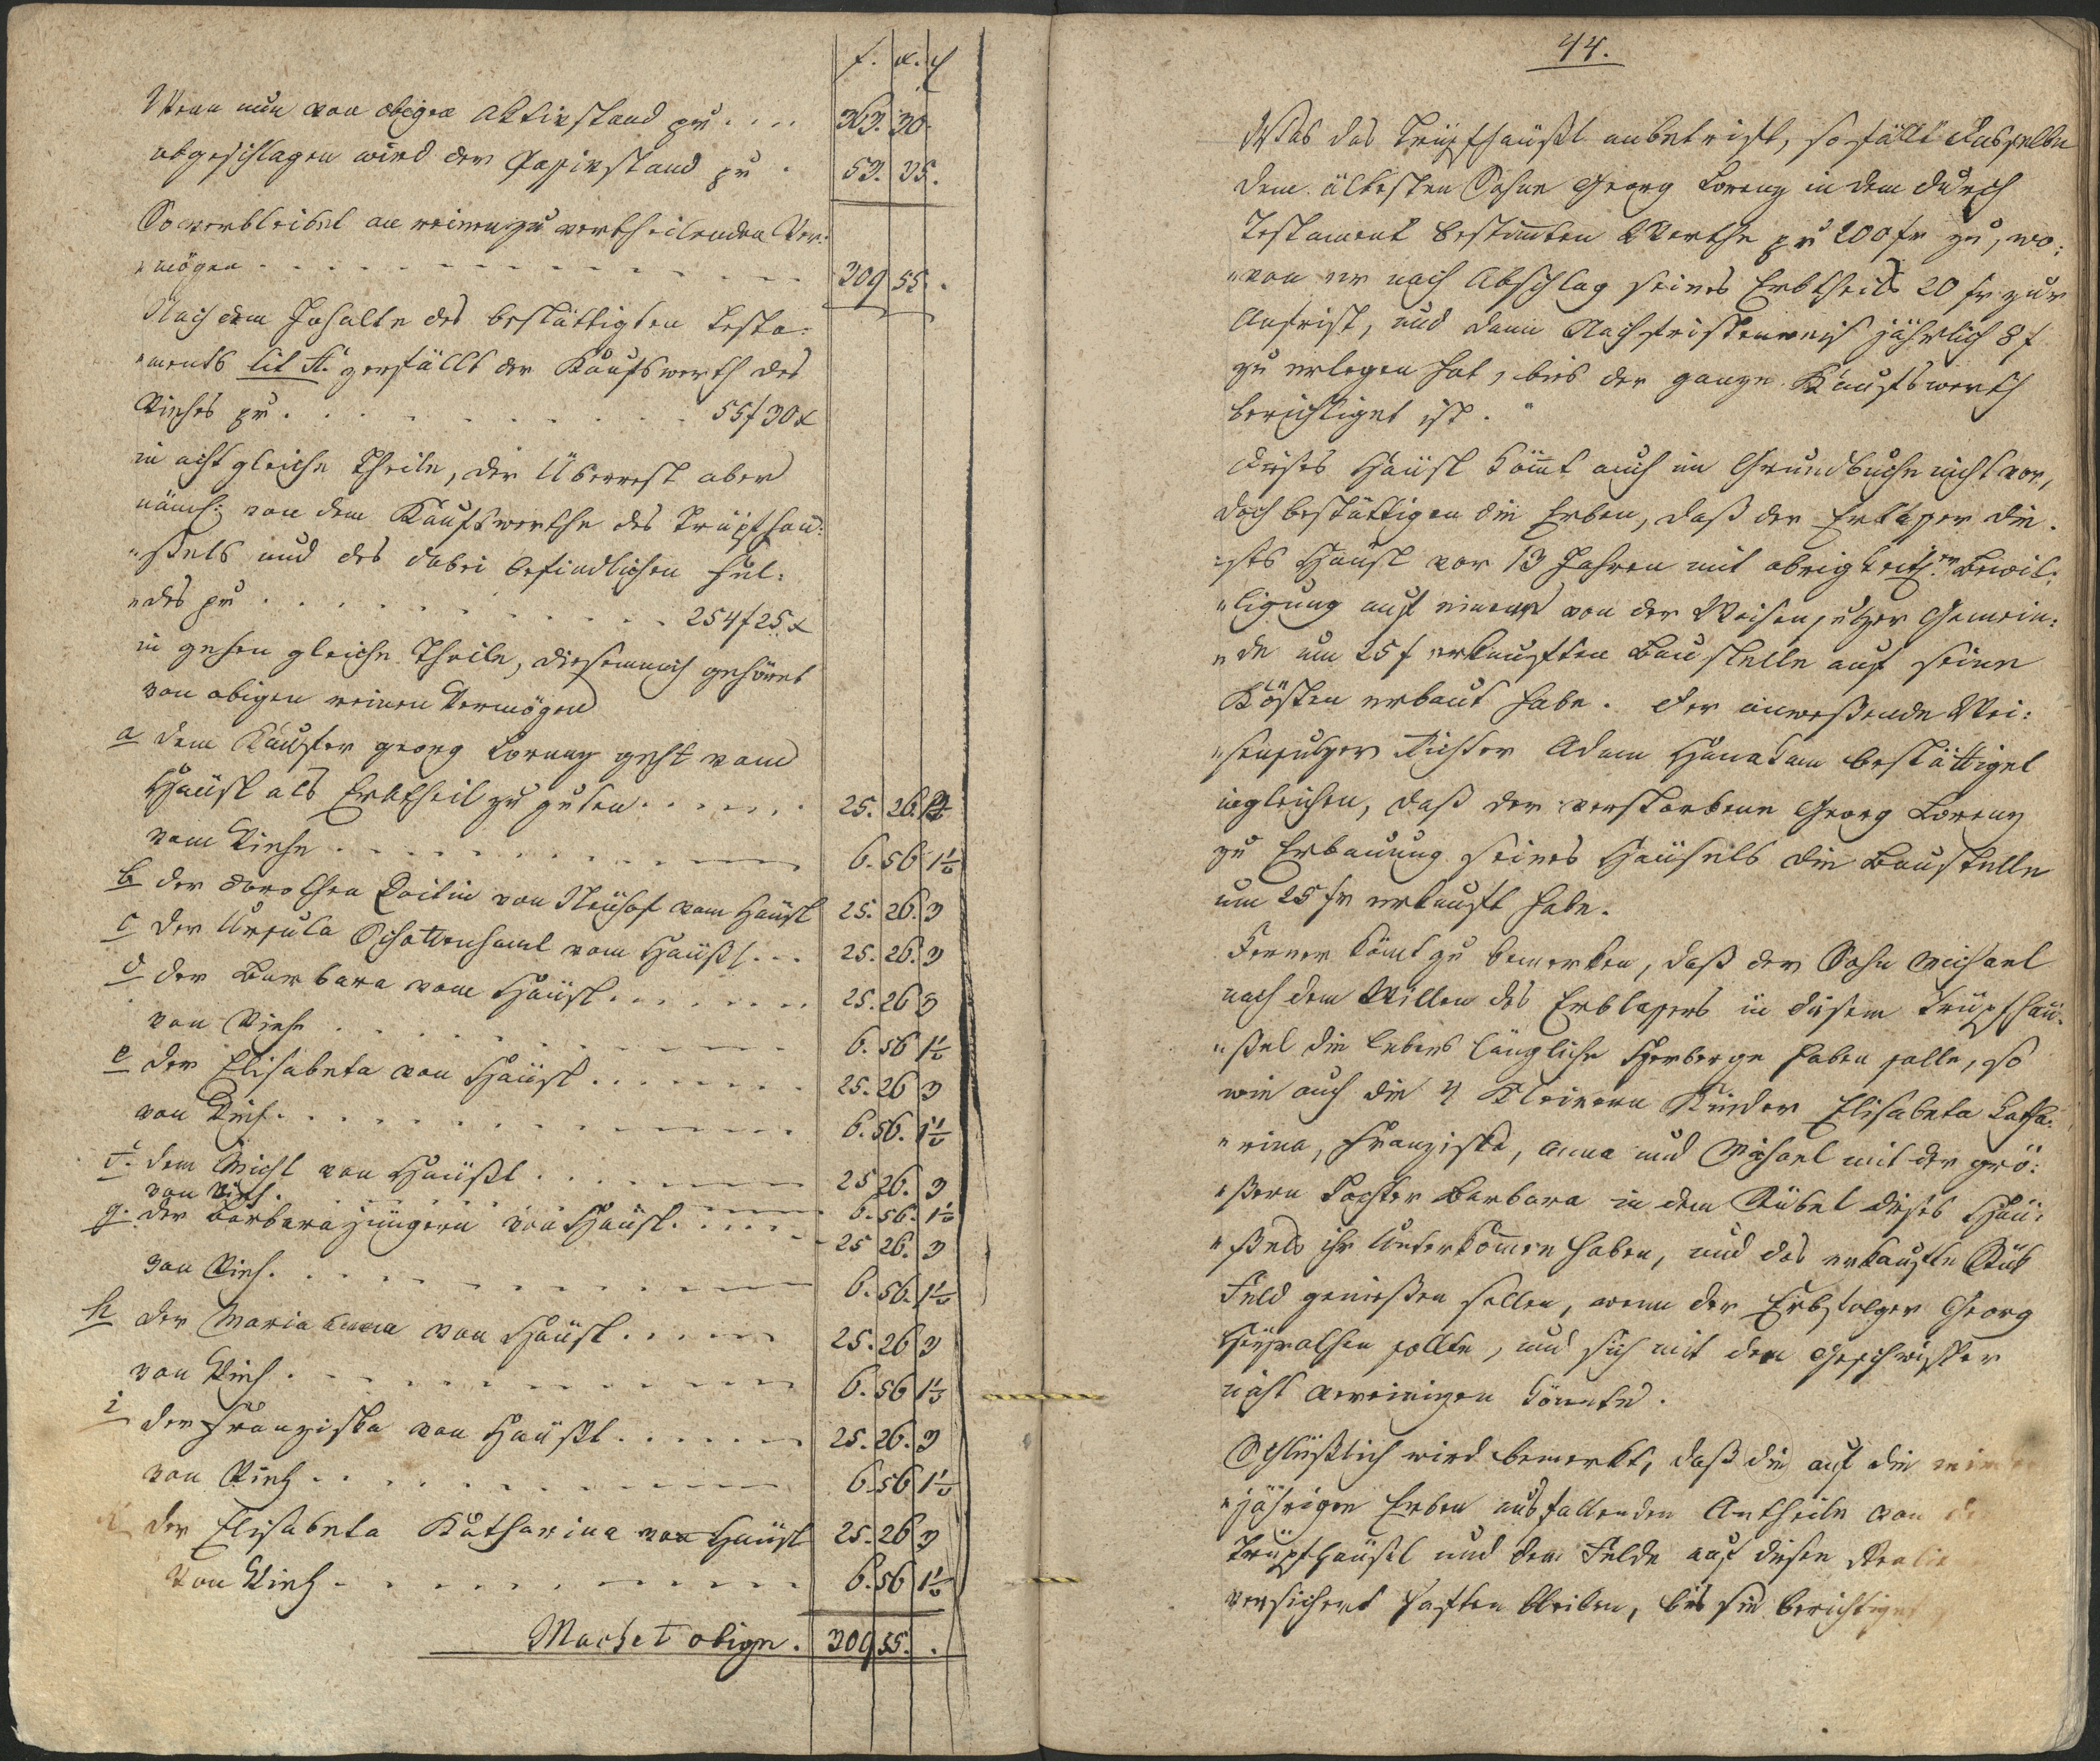 f. x. ₰
Wenn nun von obigen Aktivstand pr .... 363. 30.
abgeschlagen wird der Passivstand pr . 53. 35.
So verbleibet an reinen zu vertheilenden Ver-
"mögen 309 55 .
Nach dem Inhalte des bestättigten Testa-
"ments lit A. zerfällt der Kaufswerth des
Viehes pr 55 f 30 x
in acht gleiche Theile, der Überrest aber
nämlich von dem Kaufswerthe des Trüpfhäu-
"ßels und des dabei befindlichen Fel-
"des pr 254 f 25 x
in zehen gleiche Theile, diesemnach gehöret
von obigen reinen Vermögen
a dem Käufer Georg Lorenz geht vom
Häusl als Erbtheil zu guten 25. 26. 3
vom Viehe 6. 56 1½
b der Dorothea von Neuhof vom Häusl 25. 26. 3
c der Ursula Schottenhaml vom Häußl 25. 26. 3
d der Barbara vom Häusl 25. 26 3
von Viehe 6. 56 1½
e der Elisabeta von Häusl 25. 26 3
von Vieh 6. 56. 1½
f. dem Michl von Häußl 25 26. 3
von Vieh. 6. 56. 1½
g. der Barbara jüngern von Häusl 25 26. 3
von Vieh. 6. 56. 1½
h der Maria Anna von Häusl 25. 26 3
von Vieh 6. 56 1½
i der Franziska von Häußl 25. 26. 3
von Vieh 6. 56 1½
k der Elisabeta Katharina von Häusl 25. 26 3
von Vieh 6. 56 1½
Machet obige. 309 55. .
44.
Was das Trüpfhäußl anbetrift, so fällt dasselbe
dem ältesten Sohne Georg Lorenz in dem durch
Testament bestimten Werthe pr 200 fr zu, wo-
"von er nach Abschlag seines Erbtheils 20 fr zur
Anfrist, und dann Nachfristenweis jährlich 8 f
zu erlegen hat, bis der ganze Kaufswerth
berichtiget ist.
Dieses Häusl kömt auch im Grundbuche nicht vor,
doch bestättigen die Erben, daß der Erblaßer die-
"ses Häusl vor 13 Jahren mit obrigkeitl.er Bewil-
"ligung auf einer von der Gemein-
"de um 25 f erkauften Baustelle auf seine
Kösten erbaut habe. Der anweßende
Richter Adam bestättiget
ingleichen, daß der verstorbene Georg Lorenz
zu Erbauung seines Häusels die Baustelle
um 25 fr erkauft habe.
Ferner kömt zu bemerken, daß der Sohn Michael
nach dem Willen des Erblaßers in diesem Trüpfhäu-
"ßel die lebenslängliche Herberge haben solle, so
wie auch die 4 kleinern Kinder Elisabeta Katha-
"rina, Franziska, Anna und Michael mit der grö-
"ßern Tochter Barbara in dem Stübel dieses Häu-
"ßels ihr Unterkommen haben, und das erkaufte Stük
Feld genießen sollen, wenn der Erbfolger Georg
heyrathen sollte, und sich mit den Geschwister
nicht vereinigen könnte.
Schlüßlich wird bemerkt, daß die auf die
"jährigen Erben ausfallenden Antheile von
Trüpfhäusl und dem Felde auf diesen
versichert haften bleiben, bis sie